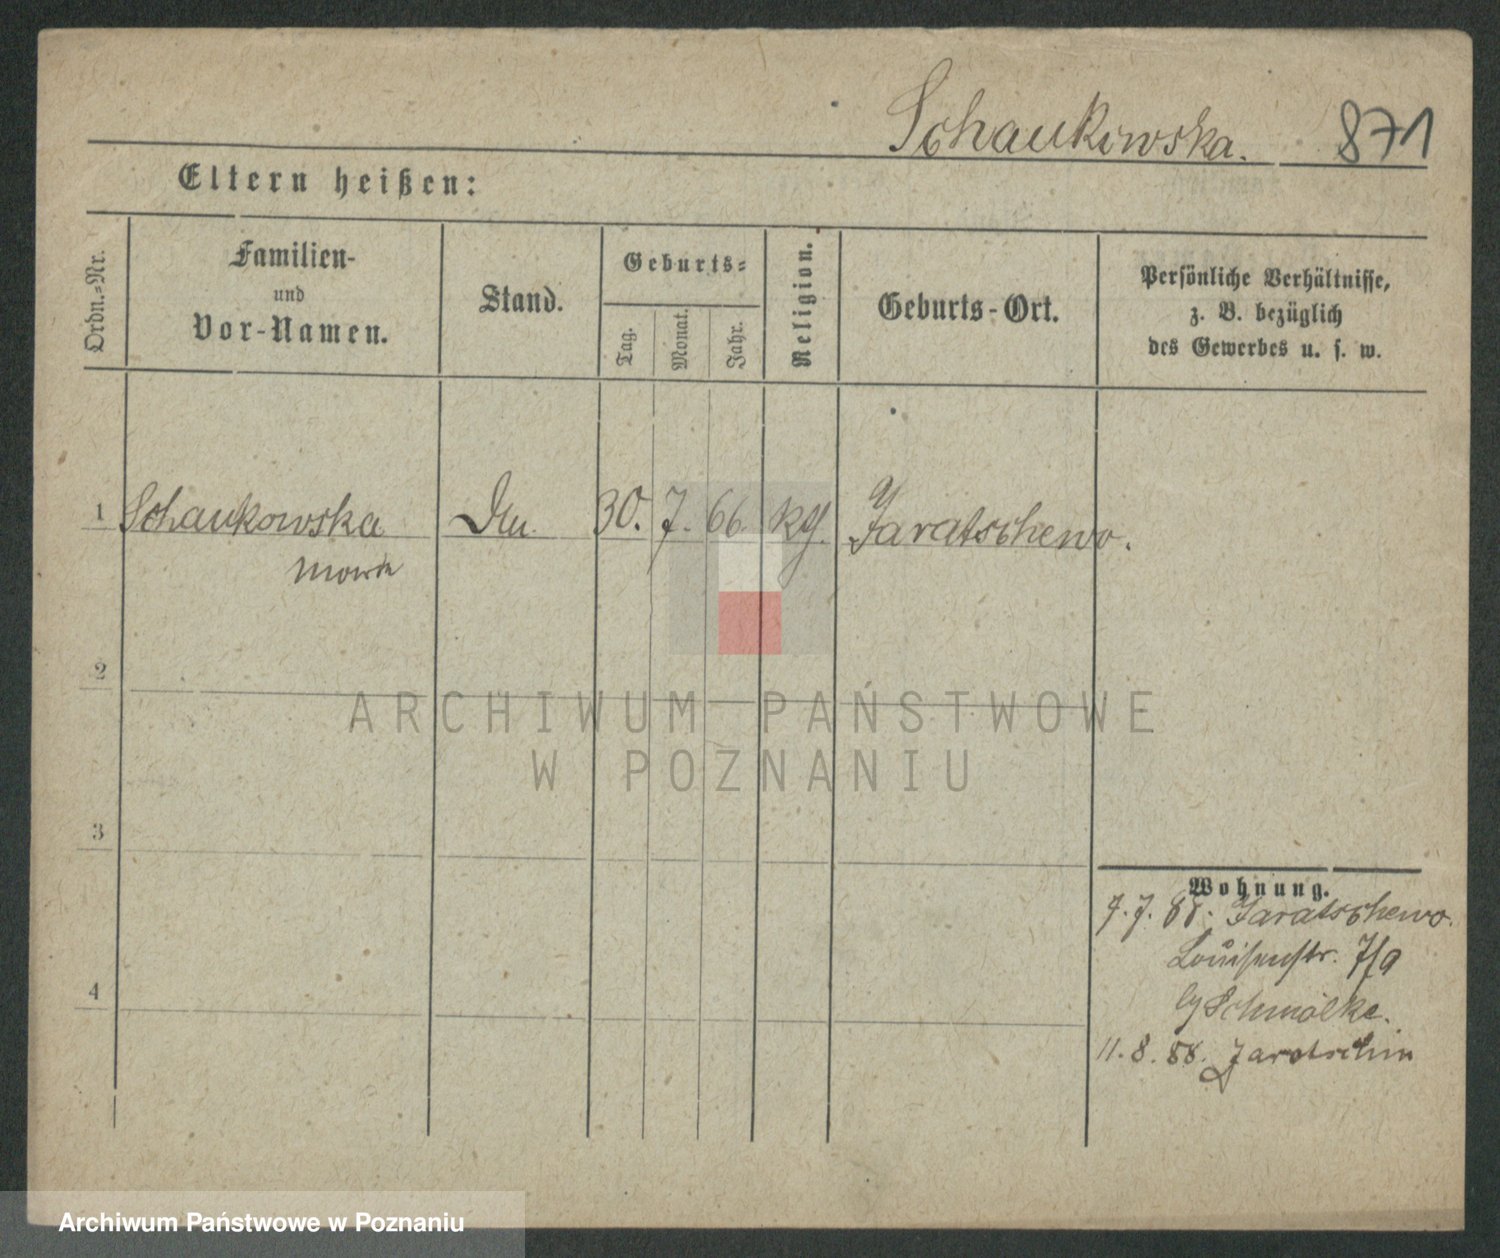 Schaukowska. 871
Eltern heißen:
Ordn.-Nr.
Familien-
und
Vor-Namen.
Stand.
Geburts-
Tag.
Monat.
Jahr.
Religion.
Geburts-Ort.
Persönliche Verhältnisse,
z. B. bezüglich
des Gewerbes u. s. w.
1 Schaukowska 30. 7. 66. Jaratschewo.
2
3
4
Wohnung.
7. 7. 88. Jaratschewo.
Louisenstr. 7/9
Schmolke.
11. 8. 88. Jarotschin
ARCHIWUM PAŃSTWOWE
W POZNANIU
Archiwum Państwowe w Poznaniu